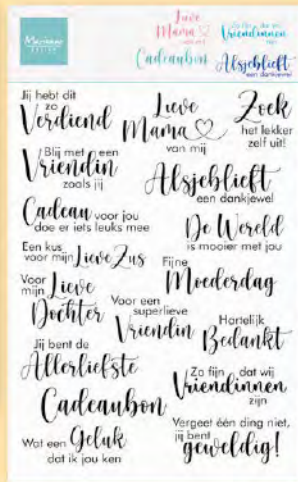 Marianne
DESIGN
Lieve
Mama
van mij
Zo fijn dat wij
Vriendinnen
zijn
Cadeaubon
Alsjeblieft
een dankjewel
Jij hebt dit
zo
Verdiend
Lieve
Mama
van mij
Zoek
het lekker
zelf uit!
Blij met een
Vriendin
zoals jij
Alsjeblieft
een dankjewel
Cadeau voor jou
doe er iets leuks mee
De Wereld
is mooier met jou
Een kus
voor mijn Lieve Zus
Fijne
Moederdag
Voor
mijn Lieve
Dochter
Voor een
superlieve
Vriendin
Hartelijk
Bedankt
Jij bent de
Allerliefste
Zo fijn dat wij
Vriendinnen
zijn
Cadeaubon
Wat een Geluk
dat ik jou ken
Vergeet één ding niet,
jij bent
geweldig!